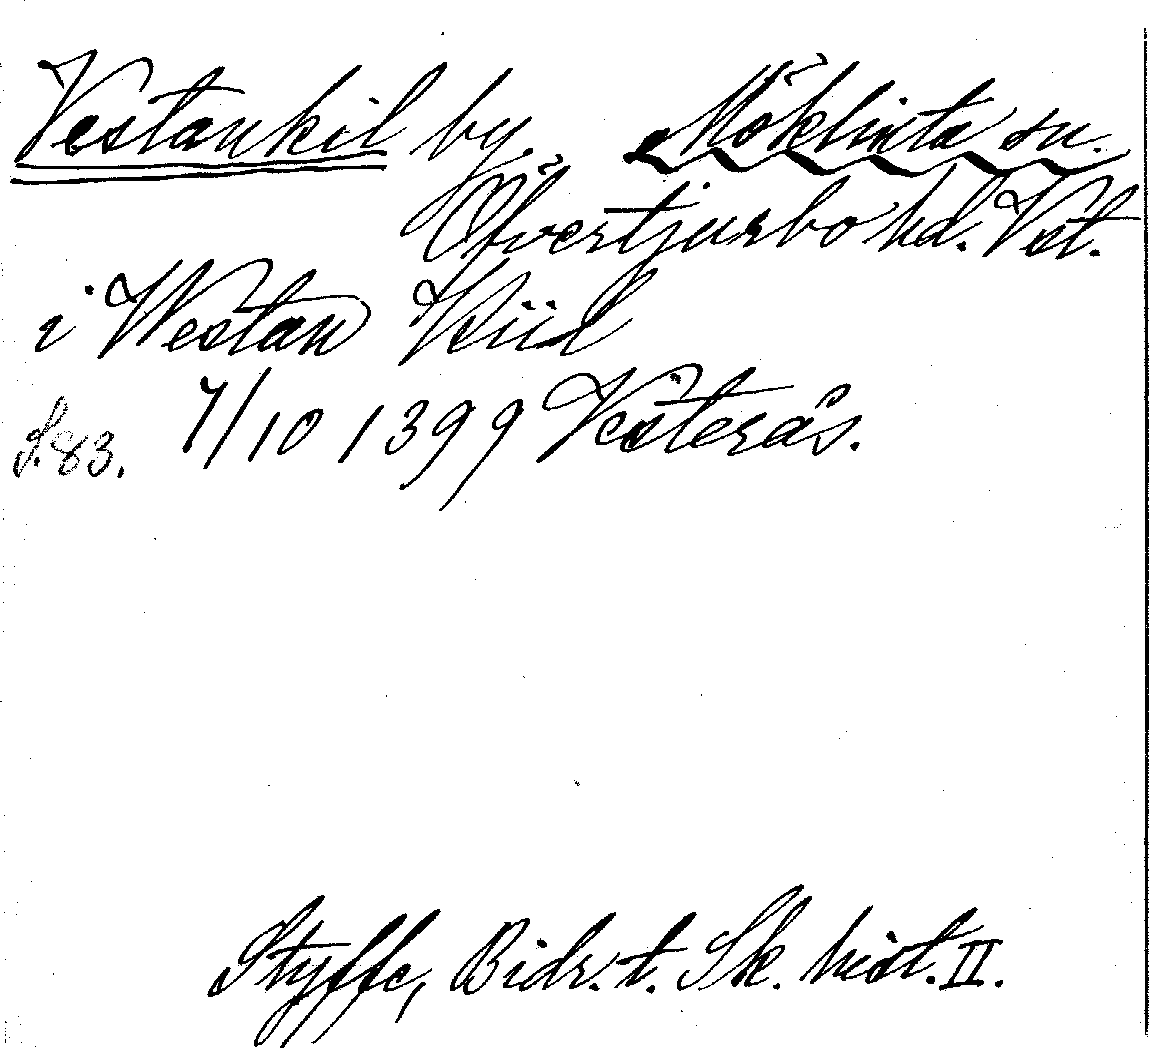 Vestankil by, Möklinta sn.
Övertjurbo hd. Vst.
i Westan Kiil
S. 83. 7/10 1399 Vesterås.
Styffe, Bidr. t. Sk. hist. II.